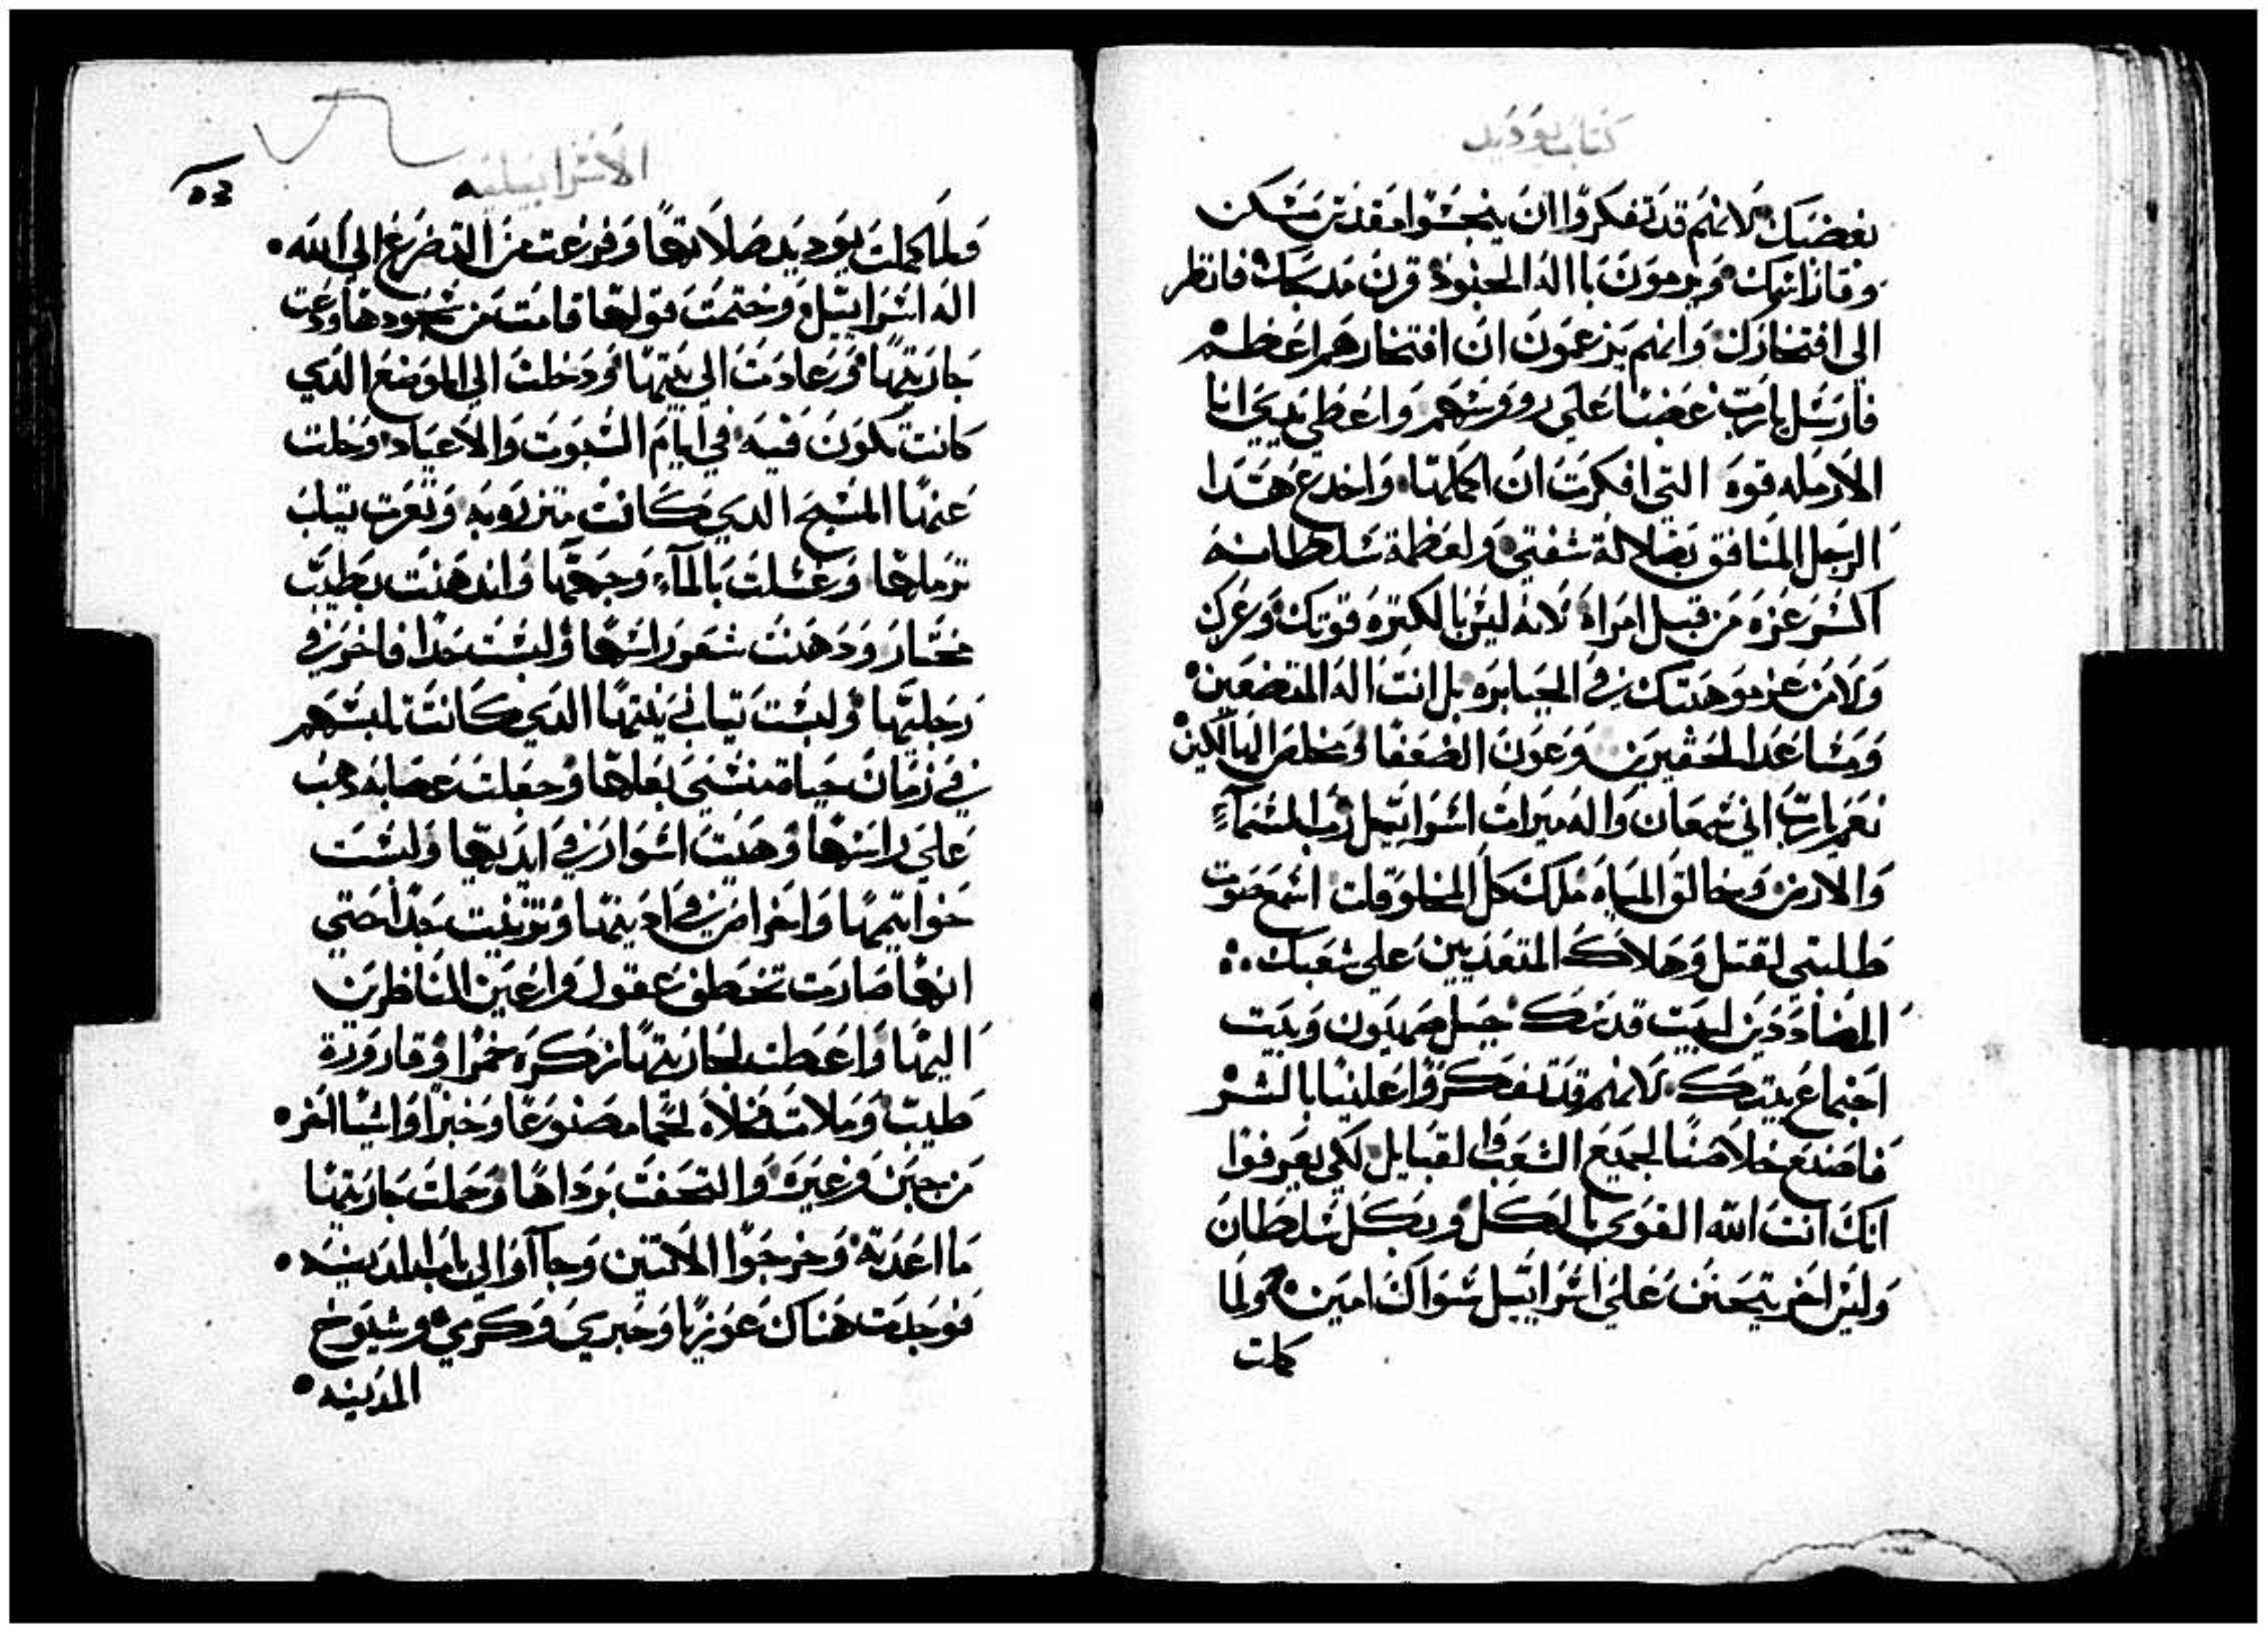 كتاب يوديد
بغضبك لانهم قد تفكروا ان ينجسوا مقدس مسكن
وقار اسمك ويرمون يا اله الجنود قرن مدبحك فانظر
الى افتخارك وانهم يزعمون ان افتخارهم اعظم
فارسل يا رب غضبا على رووسهم واعطي بيدي انا
الارمله قوه التي افكرت ان اكملها واخدع هدا
الرجل المنافق بضلالة شفتي ولعظمة سلطانه
اكسر عزه من قبل امراه لانه ليس بالكتره قوتك وعزك
ولا من عز موهبتك في الجبابره بل انت اله المتضعين
ومساعد الحقيرين وعون الضعفا ومخلص البالكين
نعم يا رب اني شمعان واله ميرات اسراييل رب السماء
والارض وخالق المياه ملك كل المخلوقات اسمع صوت
طلبتي لقتل وهلاك المتعديين على شعبك
المضاددين لبيت قدسك جبل صهيون وبيت
اجتماع بيتك لانهم قد تفكروا علينا بالشر
فاصنع خلاصا لجميع الشعب والقبايل لكي يعرفوا
انك انت الله القوي بالكل وبكل سلطان
وليس اخر يتحنن على اسراييل سواك امين ولما
كملت
الاسراييليه
٥٣
ولما كملت يوديد صلاتها وفرغت من التضرع الى الله
اله اسراييل وختمت قولها قامت من سجودها ودعت
جاريتها وعادت الى بيتها ودخلت الى الموضع الدي
كانت تكون فيه في ايام السبوت والاعياد وخلت
عنها المسح الدي كانت متزرو به وتعرت تياب
ترملها وغسلت بالماء وجهها واندهنت بطيب
مختار ودهنت شعور راسها ولبست حدا فاخر في
رجليها ولبست تياب زينتها الدي كانت تلبسهم
في زمان حياة منسى بعلها وجعلت عصابه دهب
على راسها وهيت اسوار في ايديها ولبست
خواتيمها واخراص في ادينها وتزينت جدا حتي
انها صارت تخطف عقول واعين الناظرين
اليها واعطت لجاريتها زكره خمرا وقارورة
طيب وملات مخلاه لحما مصنوعا وخبزا واشيا اخر
من جبن وغيره والتحفت برداها وحملت جاريتها
ما اعدته وخرجوا الاتنين وجآاوا الى باب المدينه
فوجدت هناك عوزيا وخبري وكرمي وشيوخ
المدينه